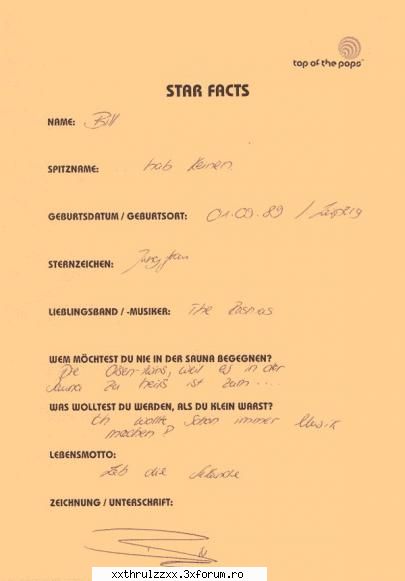 top of the pops
STAR FACTS
NAME: Bill
SPITZNAME: hab keinen
GEBURTSDATUM / GEBURTSORT: 01.09.89 / Leipzig
STERNZEICHEN: Jungfrau
LIEBLINGSBAND / -MUSIKER: The Rasmus
WEM MÖCHTEST DU NIE IN DER SAUNA BEGEGNEN?
Die Olsen-twins, weil es in der
Sauna zu heiß ist zum ....
WAS WOLLTEST DU WERDEN, ALS DU KLEIN WARST?
Ich wollte schon immer Musik
machen
LEBENSMOTTO:
Leb die Sekunde
ZEICHNUNG / UNTERSCHRIFT:
xxthrulzzxx.3xforum.ro